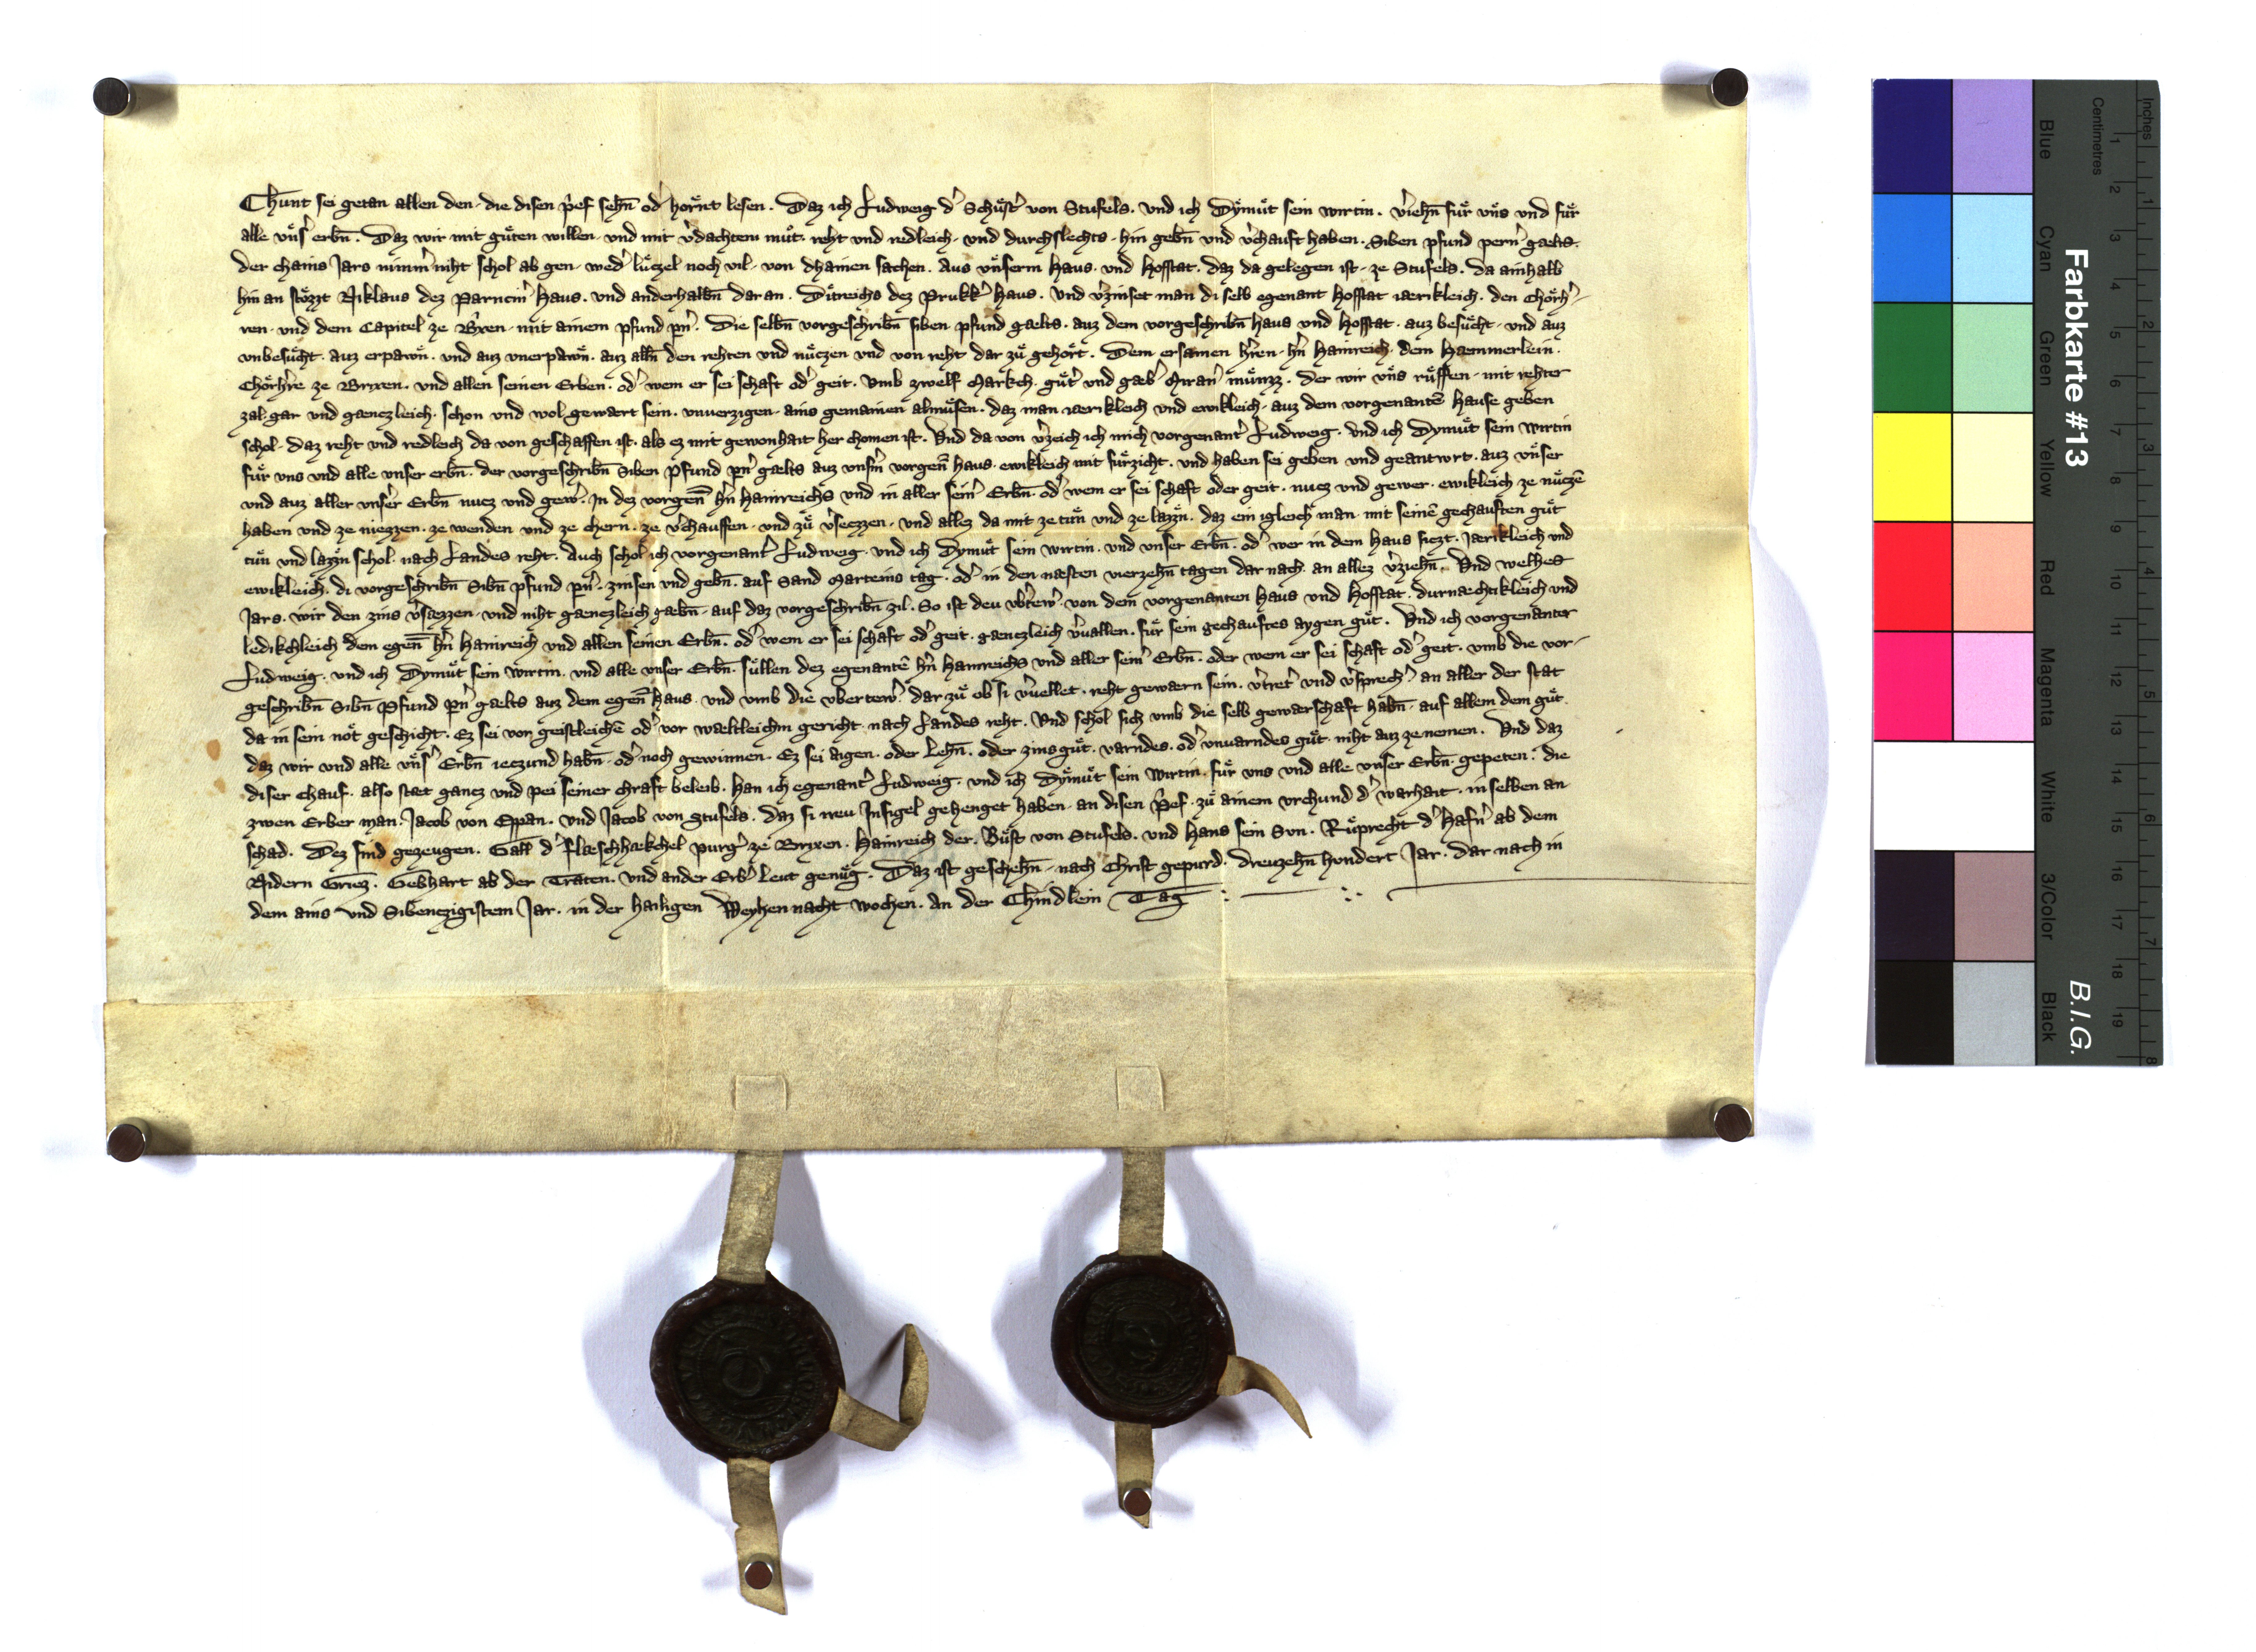 Chunt sei getan allen den · die disen p̓ef sehn̄ od̓ hoͤrnt lesen . Daz ich Ludweig d̓ Schuͦst̓ von Stufels . und ich Dymuͦt sein wirtin . v̓iehn̄ fuͤr uns und fuͤr
alle uns̓ erbn̄ . Daz wir mit guͦten willen · und mit v̓dachtem muͦt · reht und redleich · und durchslechts · hin gebn̄ und v̓chauft haben . Siben pfund pern̓ gaelts ·
der chains Jars nimm̓ niht schol ab gen · wed̓ luͤczel noch vil · von dhainen sachen . Aus unserm Haus . und Hofstat . daz da gelegen ist · ze Stufels . da ainhalb
hin an stoͤzzt Niklaus dez Parucin̓ Haus . und anderhalbn̄ daran . Ditreichs dez Prukk̓ Haus . und v̓zinset man di selb egenant Hofstat iaerikleich . den Choͤrh̓-
ren · und dem Capitel ze Br̓xen · mit ainem pfund pn̓ . Die selbn̄ vorgeschribn̄ siben pfund gaelts . auz dem vorgeschribn̄ haus und Hofstat · auz besuͦcht · und auz
unbesuͦcht . auz erpawn̄ . und auz unerpawn̄ . auz alln̄ den rehten und nuͤczen und von reht dar zuͦ gehoͤrt . Dem ersamen h̓ren · h̓n Hainreich . dem Haemmerlein .
Choͤrh̓re ze Brixen . und allen seinen Erben . od̓ wem er sei schaft od̓ geit . Umb zwelf Markch . guͦt̓ und gaeb̓ Meran̓ muͤnzz . der wir uns ruͤffen · mit rehter
zal · gar und gaenczleich . schon und wol gewert sein . unverzigen · ains gemainen almuͦsen . daz man iaerikleich und ewikleich · auz dem vorgenantē Hause geben
schol · daz reht und redleich da von geschaffen ist . als ez mit gewonhait her chomen ist . Und da von v̓zeich ich mich vorgenant̓ Ludweig . und ich Dymuͦt sein wirtin
fuͤr uns und alle unser erbn̄ . der vorgeschribn̄ Siben pfund pn̓ gaelts auz unsm̓ vorgen̄ haus . ewikleich mit fuͤrzicht . und haben sei geben und geantwrt . auz unser
und auz aller uns̓er Erbn̄ nucz und gew̓ . In dez vorgen̄ h̓n Hainreichs und in aller sein̓ Erbn̄ . od̓ wem er sei schaft oder geit . nucz und gewer . ewikleich ze nuͤczē
haben und ze niezzen . ze wenden und ze chern . ze v̓chauffen · und zuͦ v̓seczzen . und allez da mit ze tuͦn und ze lazzn̄ . daz ein igleich̓ man · mit seinē gechauften guͦt
tuͦn und lazzn̄ schol . nach Landes reht . Auch schol ich vorgenant̓ Ludweig . und ich Dymuͦt sein wirtin . und unser Erbn̄ . od̓ wer in dem Haus siczt . Jaerikleich und
ewikleich . di vorgeschribn̄ Sibn̄ pfund pn̓ . zinsen und gebn̄ . auf Sand Marteins tag . od̓ in den naesten vierzehn̄ tagen dar nach . an allez v̓ziehn̄ . Und welhes
Jars . wir den zins v̓saezzen . und niht gaenczleich gaebn̄ . auf daz vorgeschribn̄ zil . So ist deu ub̓tew̓ . von dem vorgenanten Haus und Hofstat . durnaechtikleich und
ledikchleich dem egen̄ h̓n Hainreich und allen seinen Erbn̄ . od̓ wem er sei schaft od̓ geit . gaenczleich v̓vallen . fuͤr sein gechauftes aygen guͦt . Und ich vorgenanter
Ludweig . und ich Dymuͦt sein wirtin . und alle unser Erbn̄ . suͤllen dez egenantē h̓n Hainreichs und aller sein̓ Erbn̄ . oder wem er sei schaft od̓ geit . umb die vor-
geschribn̄ Sibn̄ Pfund pn̓ gaelts auz dem egen̄ haus . und umb die ubertew̓ . dar zuͦ ob si v̓vellet . reht gewaern sein . v̓tret̓ und v̓sprech̓ . an aller der stat
da in sein noͤt geschicht . Ez sei von geistleichē od̓ vor waeltleichm gericht . nach Landes reht . Und schol sich umb die selb gewaerschaft habn̄ . auf allem dem guͦt
daz wir und alle uns̓ Erbn̄ ieczund habn̄ . od̓ noch gewinnen . Ez sei aigen . oder Lehn̄ . oder zinsguͦt . varndes . od̓ unvarndes guͦt . niht auz ze nemen . Und daz
diser chauf . also staet gancz und pei seiner chraft beleib . Han ich egenant̓ Ludweig . und ich Dymuͦt sein wirtin . fuͤr uns und alle unser Erbn̄ . gepeten . die
zwen Erber man . Jacob von Eppan . und Jacob von Stufels . daz si ireu Insigel gehenget haben . an disen p̓ef . zuͦ ainem urchund d̓ warhait . in selben an
schad . Dez sind gezeugen . Gall d̓ Flaeschhaekchel purg̓ ze Brixen . Hainreich der . Buͦst von Stufels . und Hans sein Sun . Ruͦprecht d̓ Hafn̓ ab dem
Nidern Griez . Gebhart ab der Traten . und ander Erb̓ leut genuͦg . Daz ist geschehn̄ . nach Christ gepurd . dreuzehn̄ hondert Jar . dar nach in
dem ains und Sibenczigistem Jar . in der hailigen Weyhennacht wochen . An der Chindlein Tag

Farbkarte #13
B.I.G.
Inches
Centimetres
1 2 3 4 5 6 7 8 9 10 11 12 13 14 15 16 17 18 19
1 2 3 4 5 6 7 8
Blue Cyan Green Yellow Red Magenta White 3/Color Black